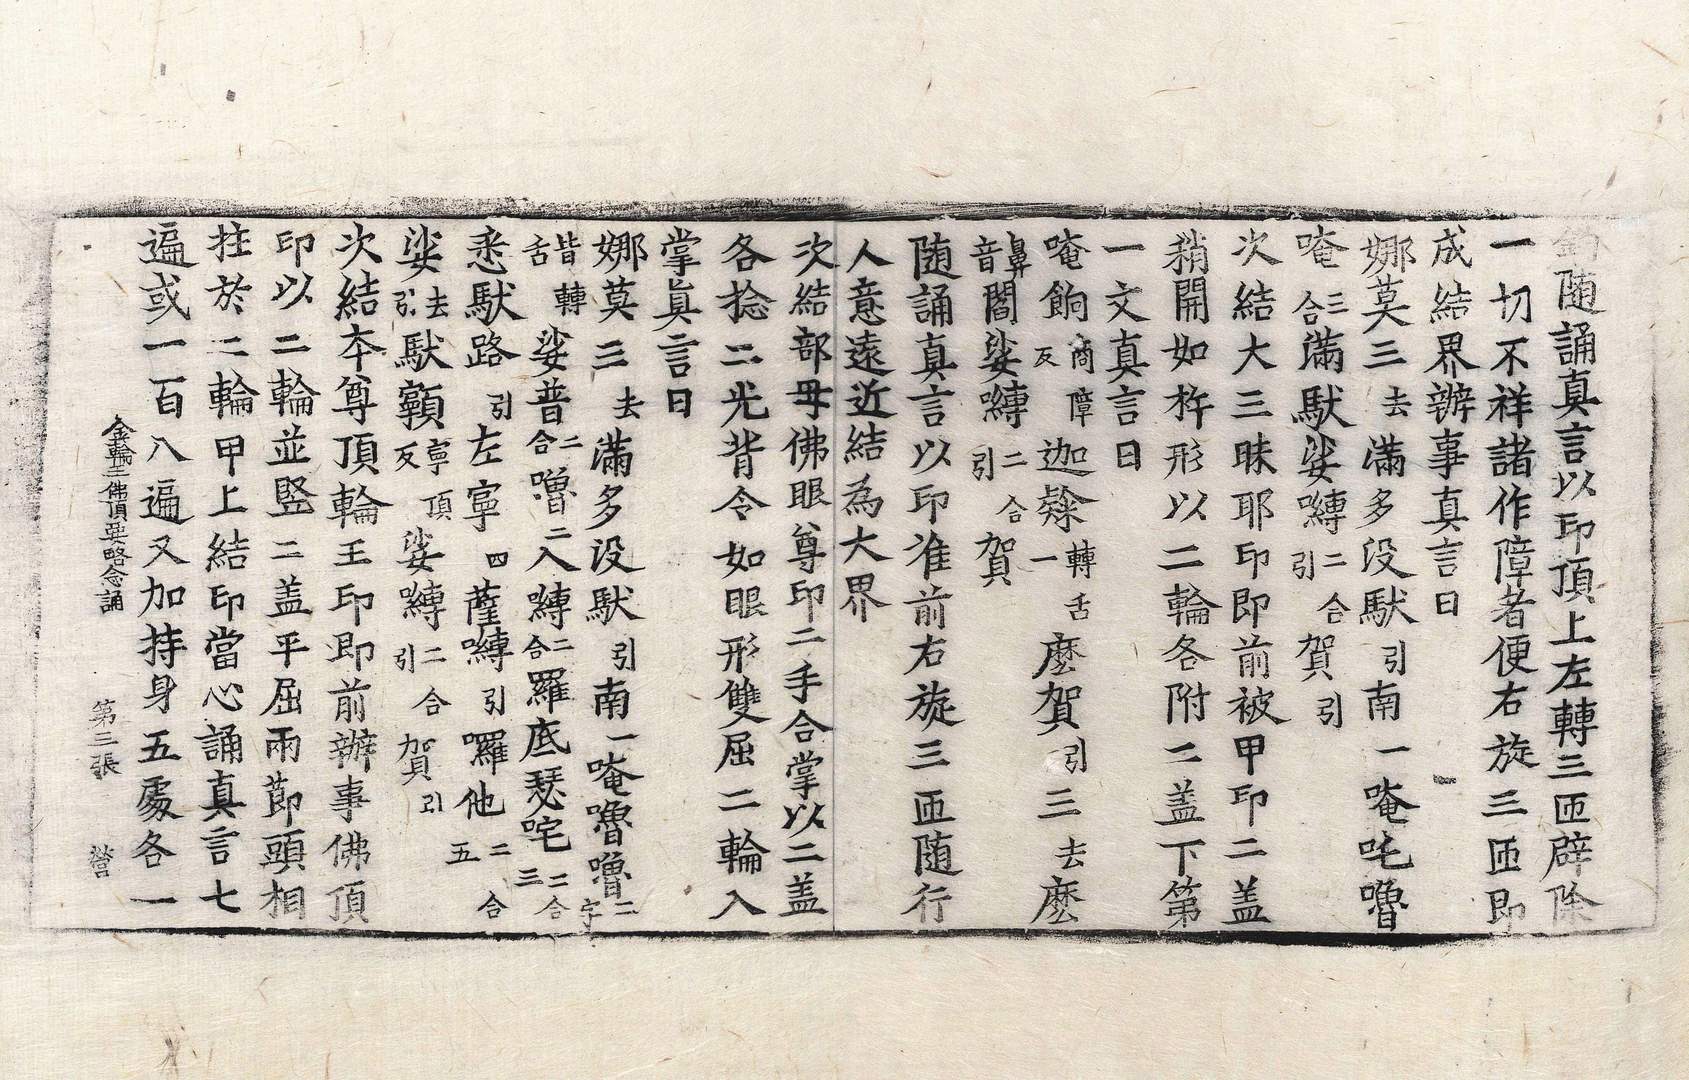 鉤随誦真言以印頂上左轉三匝辟除
一切不祥諸作障者便右旋三匝即
成結界辦事真言曰
娜莫三去滿多没馱引南一唵吒嚕
唵三合滿馱娑嚩二合引賀引
次結大三昧耶印即前被甲印二盖
稍開如杵形以二輪各附二盖下第
一文真言曰
唵餉商障反迦㘑轉舌一麽賀引三去麽
鼻音閻娑嚩二合引賀
随誦真言以印准前右旋三匝随行
人意遠近結為大界
次結部母佛眼尊印二手合掌以二盖
各捻二光背令如眼形雙屈二輪入
掌真言曰
娜莫三去滿多没馱引南一唵嚕嚕二字
皆轉舌娑普二合嚕二入嚩二合羅底瑟咤二合三
悉馱路引左寧四薩嚩引囉他二合五
娑去引馱顐寧頂反娑嚩二合引賀引
次結本尊頂輪王印即前辦事佛頂
印以二輪並竪二盖平屈兩節頭相
拄於二輪甲上結印當心誦真言七
遍或一百八遍又加持身五處各一
金輪王佛頂要略念誦 第三張 營